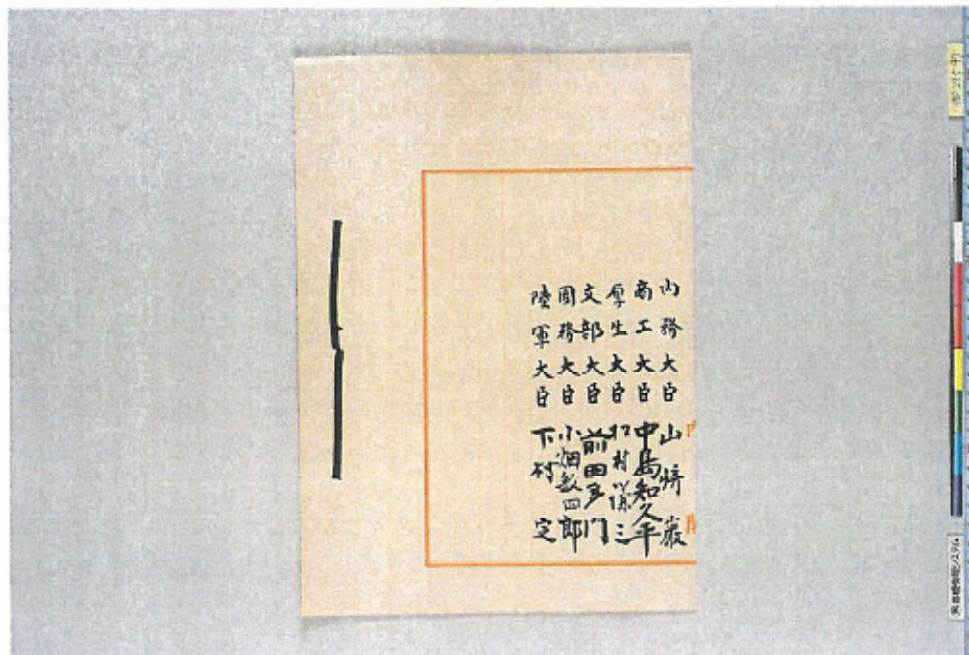 内務大臣 山崎巌
商工大臣 中島知久平
厚生大臣 松村謙三
文部大臣 前田多門
国務大臣 小畑敏四郎
陸軍大臣 下村定